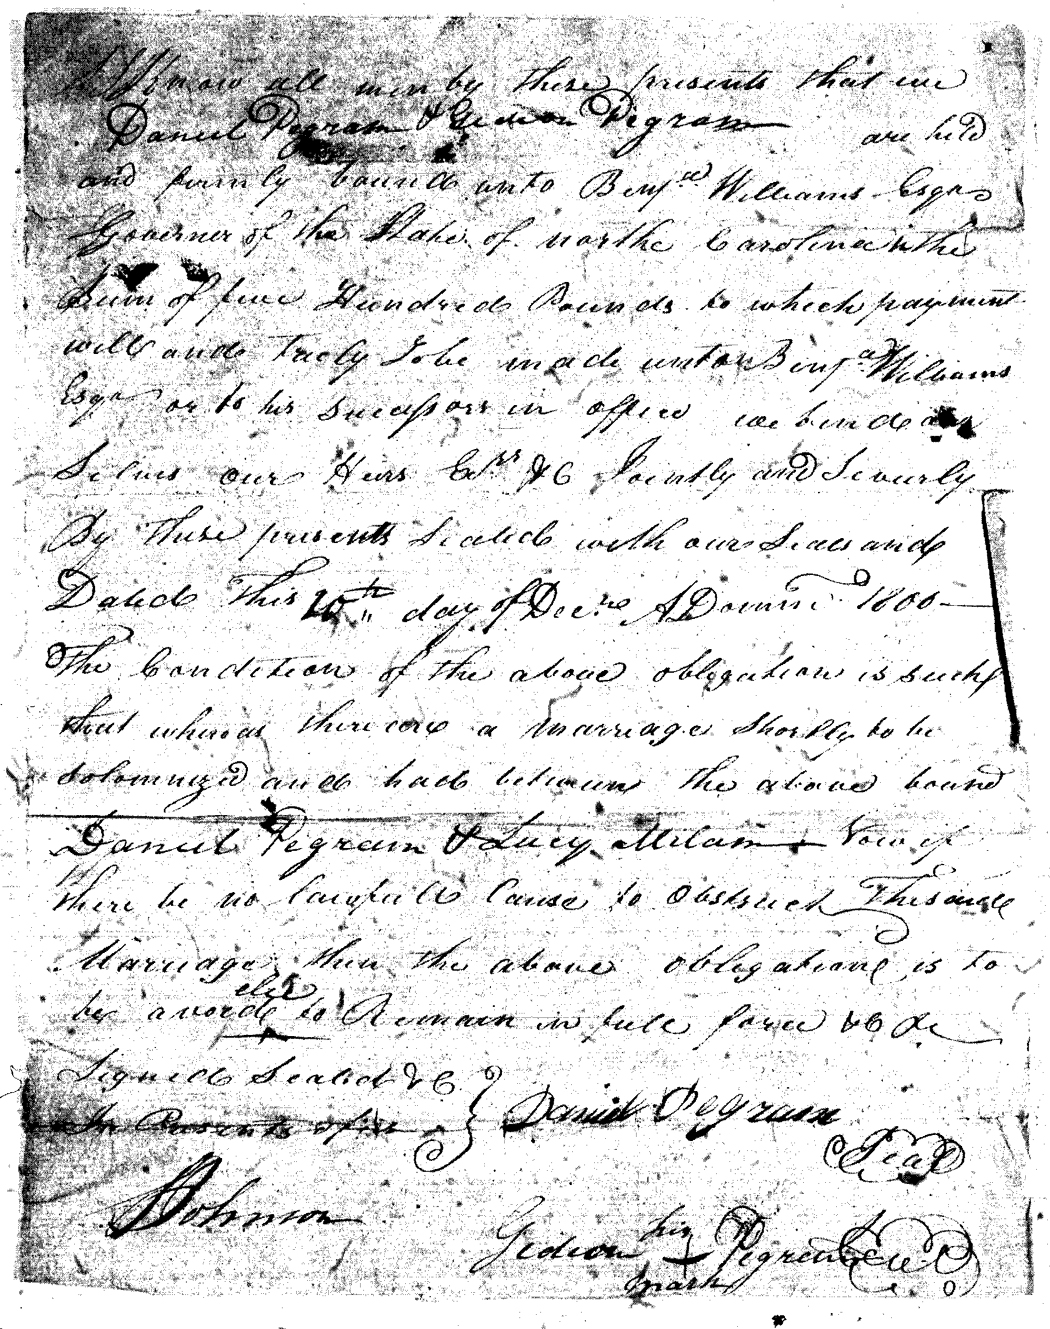 Know all men by these presents that we
Daniel Pegram & Gideon Pegram are held
and firmly bound unto Benja Williams Esqr
Governer of the State of north Carolina in the
Sum of five Hundred Pounds to which payment
will and truly to be made unto Benja Williams
Esqr or to his successors in office we bind our
Selves our Heirs Exrs &C Jointly and Severly
By these presents Sealed with our Seals and
Dated this 10th day of Decre A Domini 1800
The Condition of the above obligation is such
that whereas there is a marriage Shortly to be
Solomnized and had between the above bound
Daniel Pegram & Lucy Milam Now if
there be no lawfull Cause to Obstruct This
Marriage then the above obligation is to
be a void else to Remain in full force &C
Signed Sealed &C
In Presents of us
Daniel Pegram
Seal
Johnson
Gideon his Pegram Seal
mark